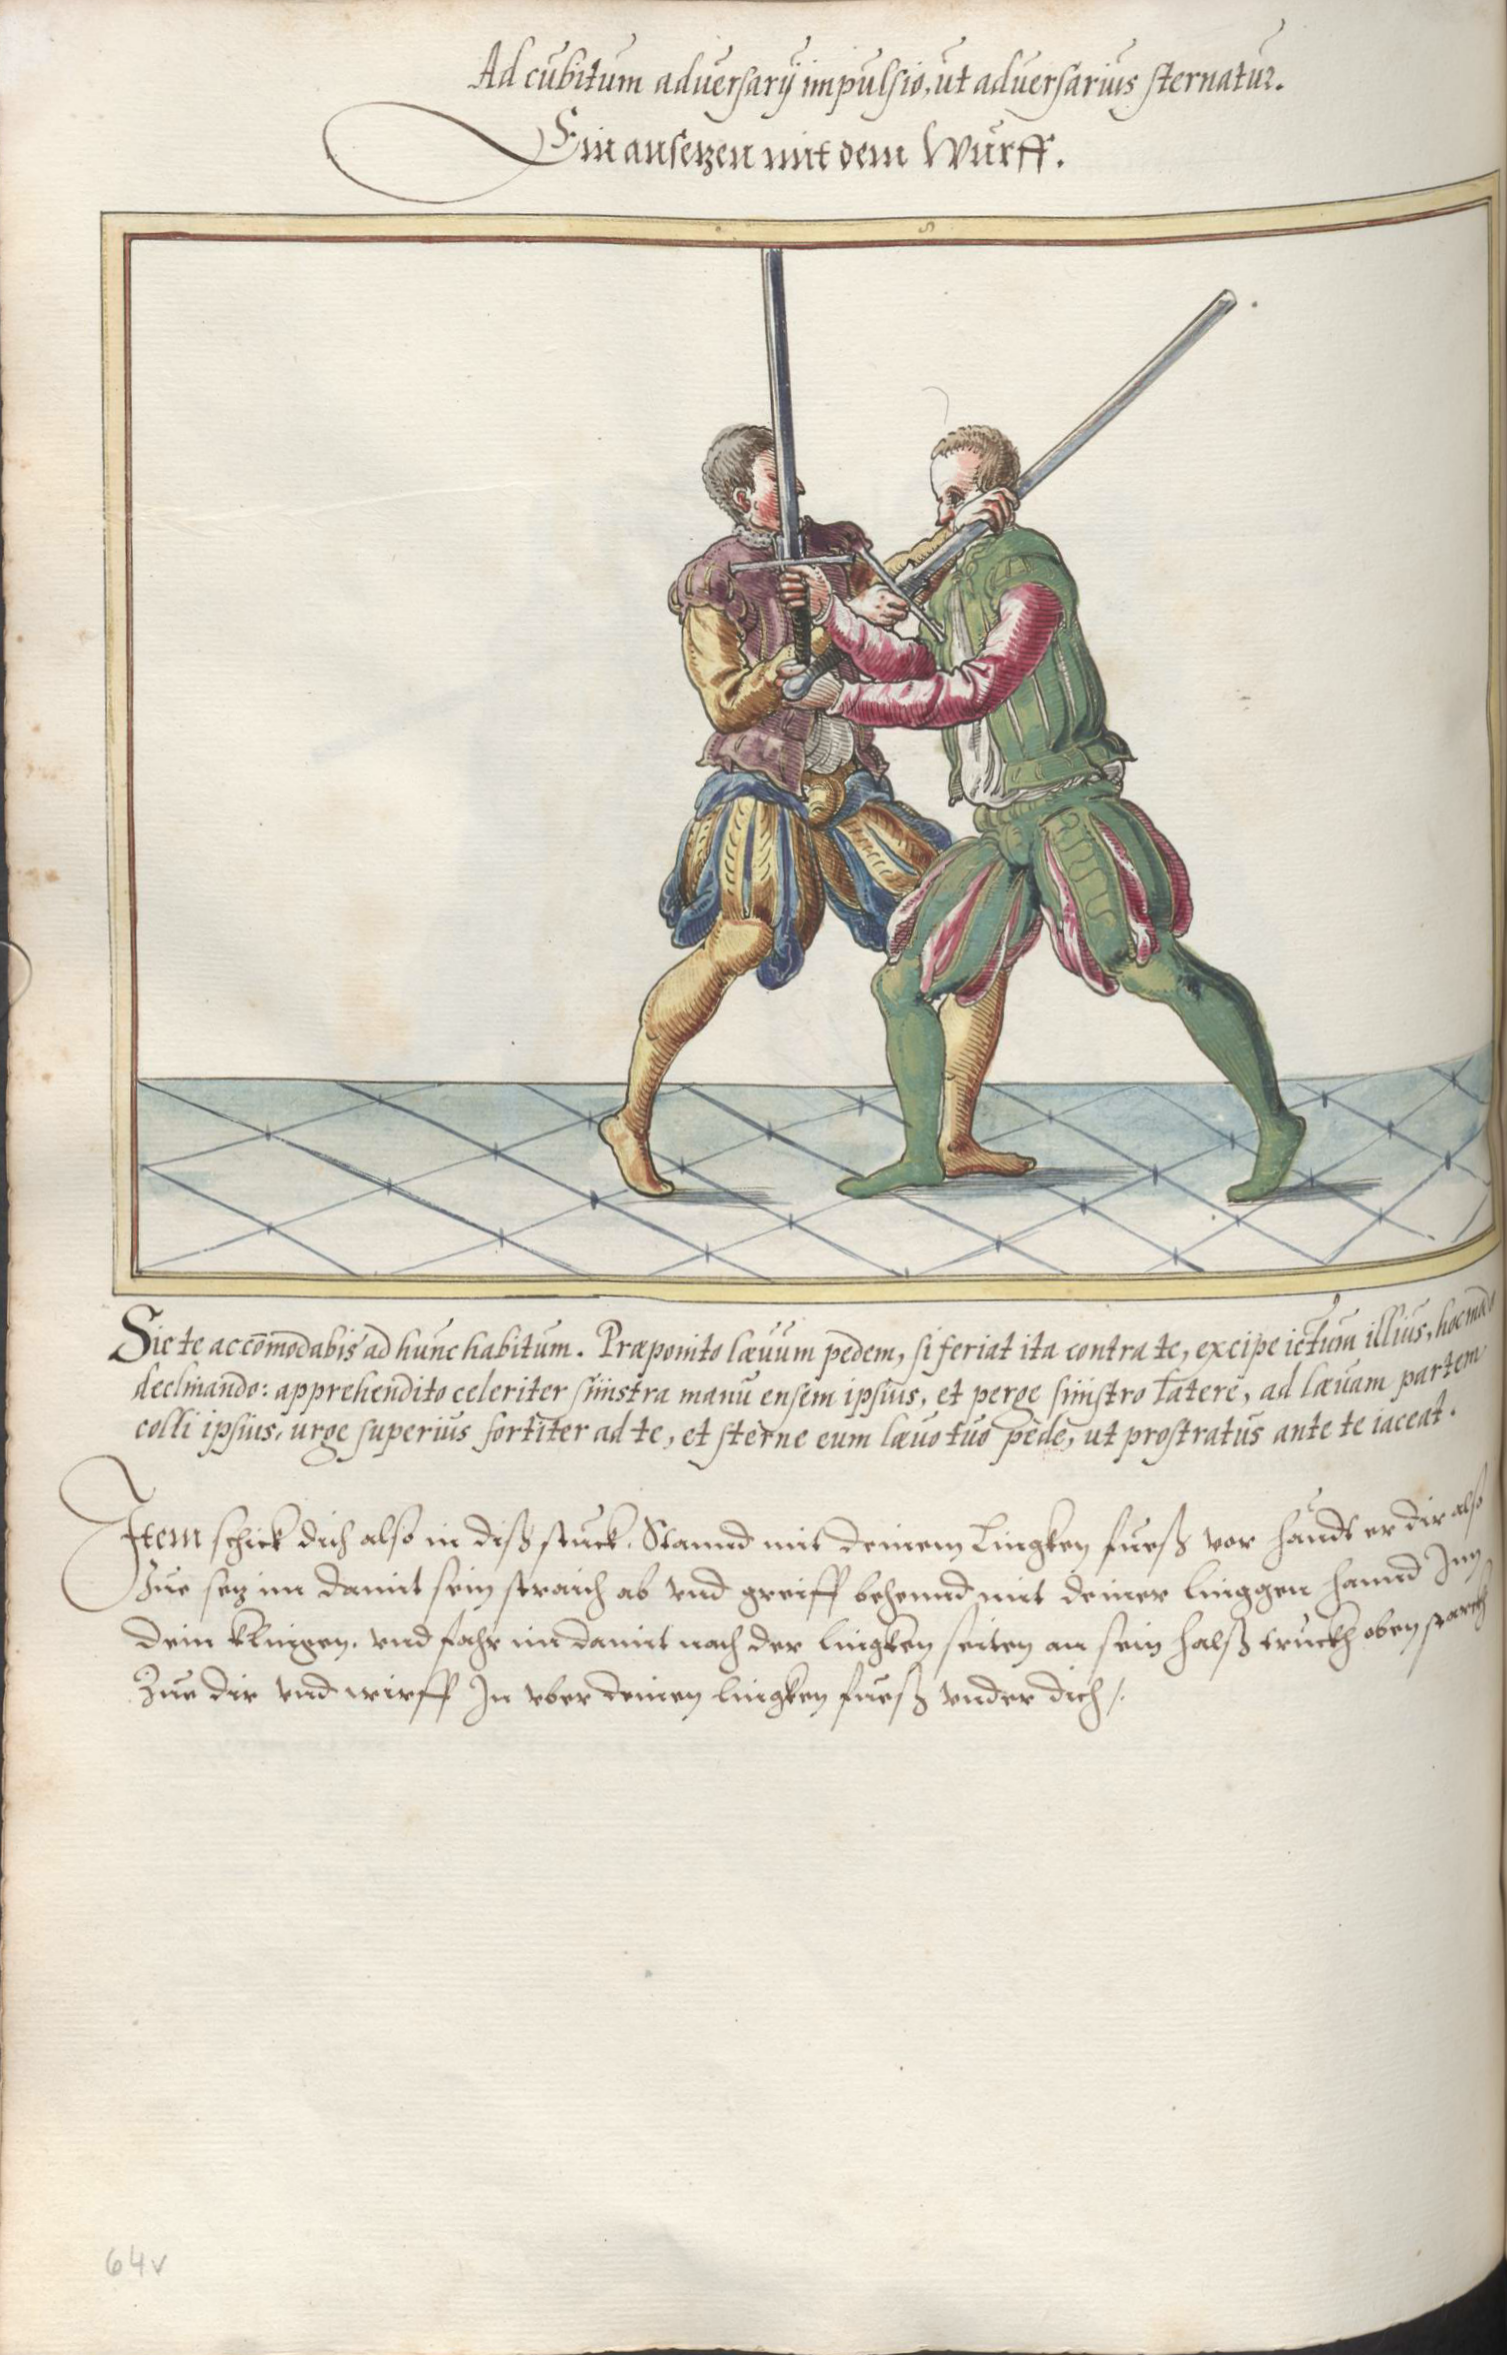 Ad cubitum adversarÿ impulsio, ut adversarius sternatur.
Ein ansetzen mit dem Wurff.
Sic te accōmodabis ad hunc habitum. Præponito lævum pedem, si feriat ita contra te, excipe ictum illius, hoc modo
declinando: apprehendito celeriter sinistra manu ensem ipsius, et perge sinistro latere, ad lævam partem
colli ipsius, urge superius fortiter ad te, et sterne eum lævo tuo pede, ut prostratus ante te iaceat.
Item schick dich also in diß stuck. Stannd mit deinem Lingken fueß vor haudt er dir also
Zue setz im damit sein straich ab vnd greiff behennd mit deiner linggen hannd Inn
dein klingen. vnd fahr im damit nach der lingken seiten an sein halß truckh oben starckh
Zue dir vnd wirff In vber deinen lingken fueß vnder dich /.
64v